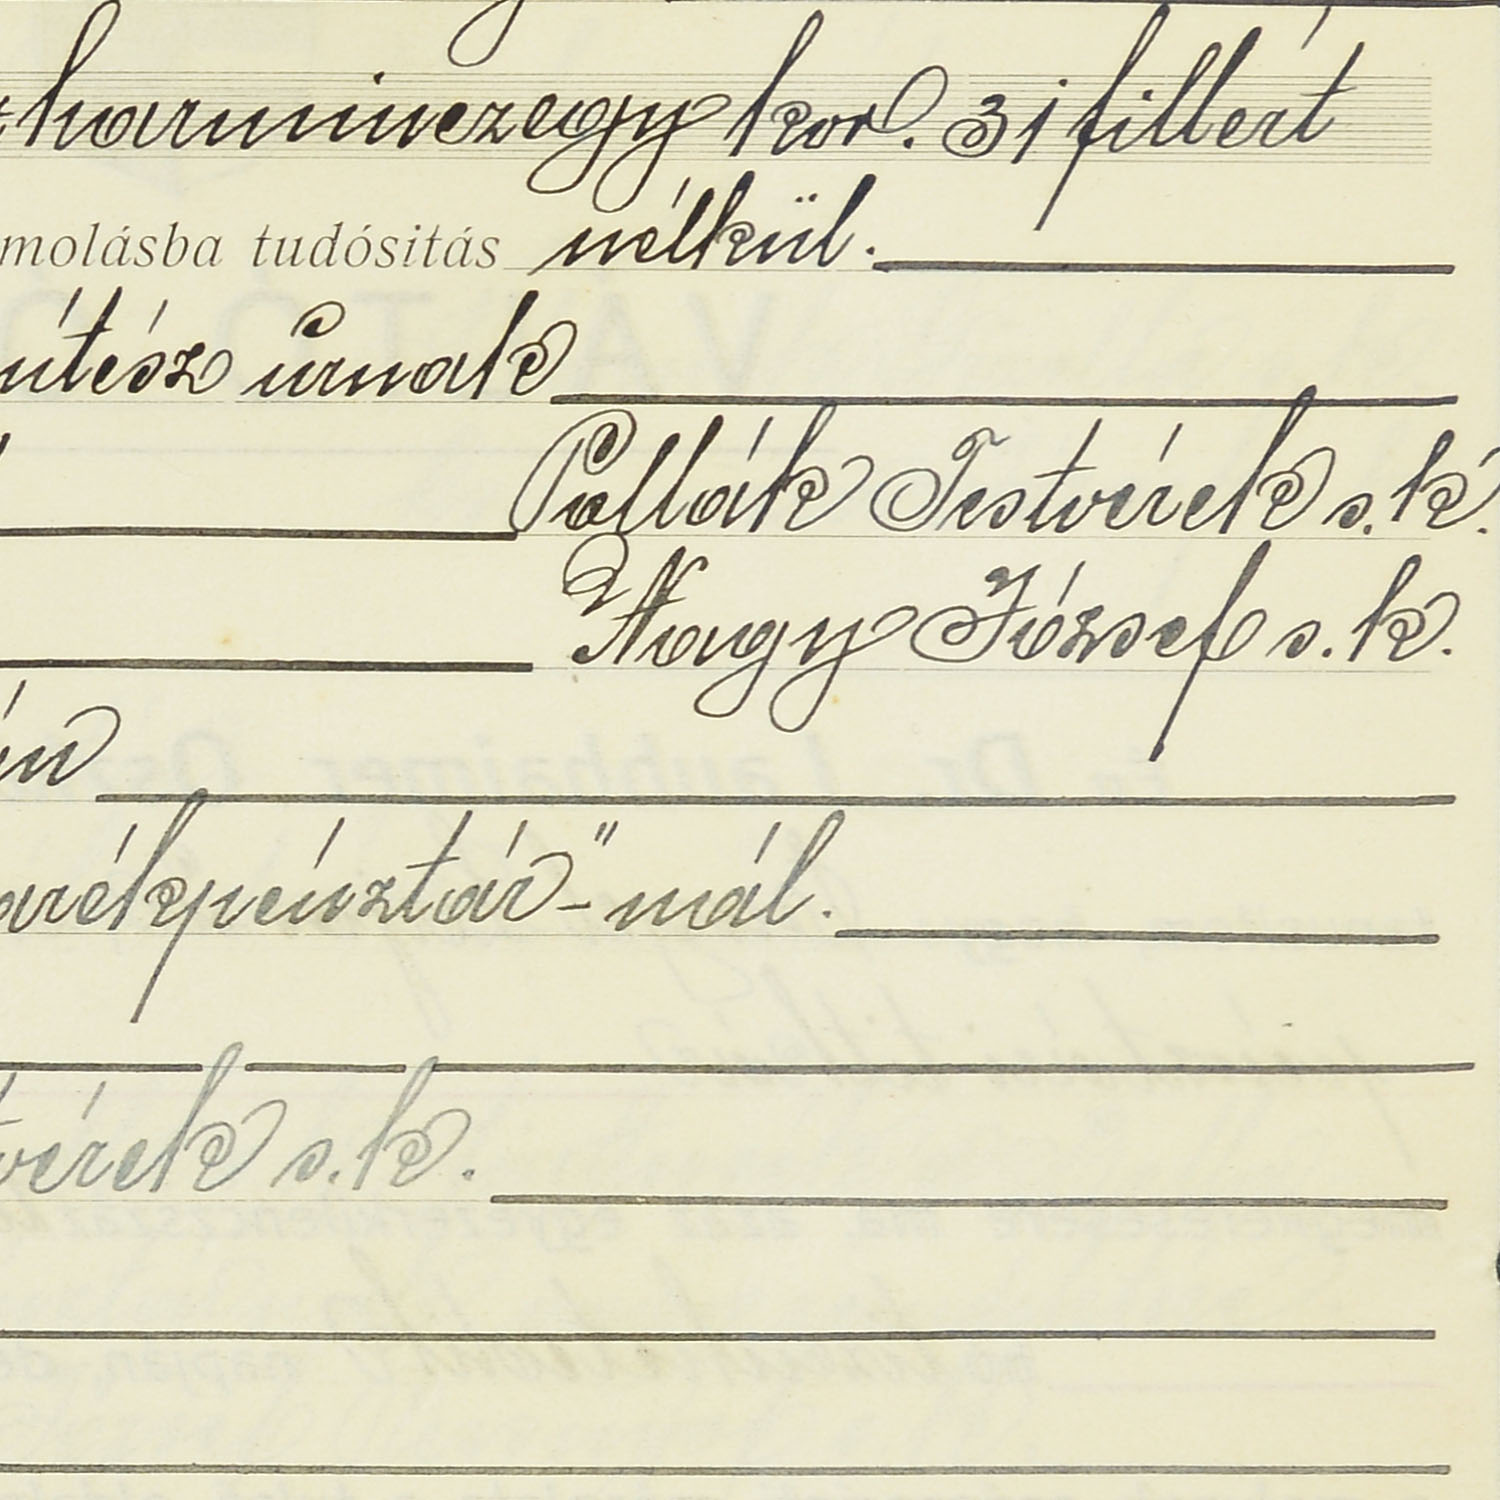 harminczegy kor. 31 fillért
molásba tudósitás nélkül.
űtész úrnak
Pollák Testvérek s. k.
Nagy József s. k.
én
arékpénztár-" mál.
vérek s. k.